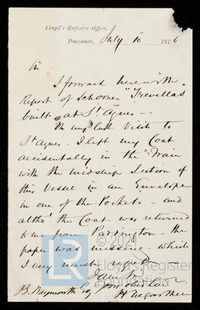 Lloyd's Register Office,
Penzance, July 10 1876
Sir
I forward herewith
Report of Schooner "Trevellas"
built at St Agnes —
On my last Visit to
St Agnes. I left my Coat
accidentally in the Train
with the midship Section of
this Vessel in an Envelope
in one of the Pockets — and
altho' the Coat was returned
to me from Paddington — the
paper was missing which
I very much regret
I am
B. Waymouth Esq